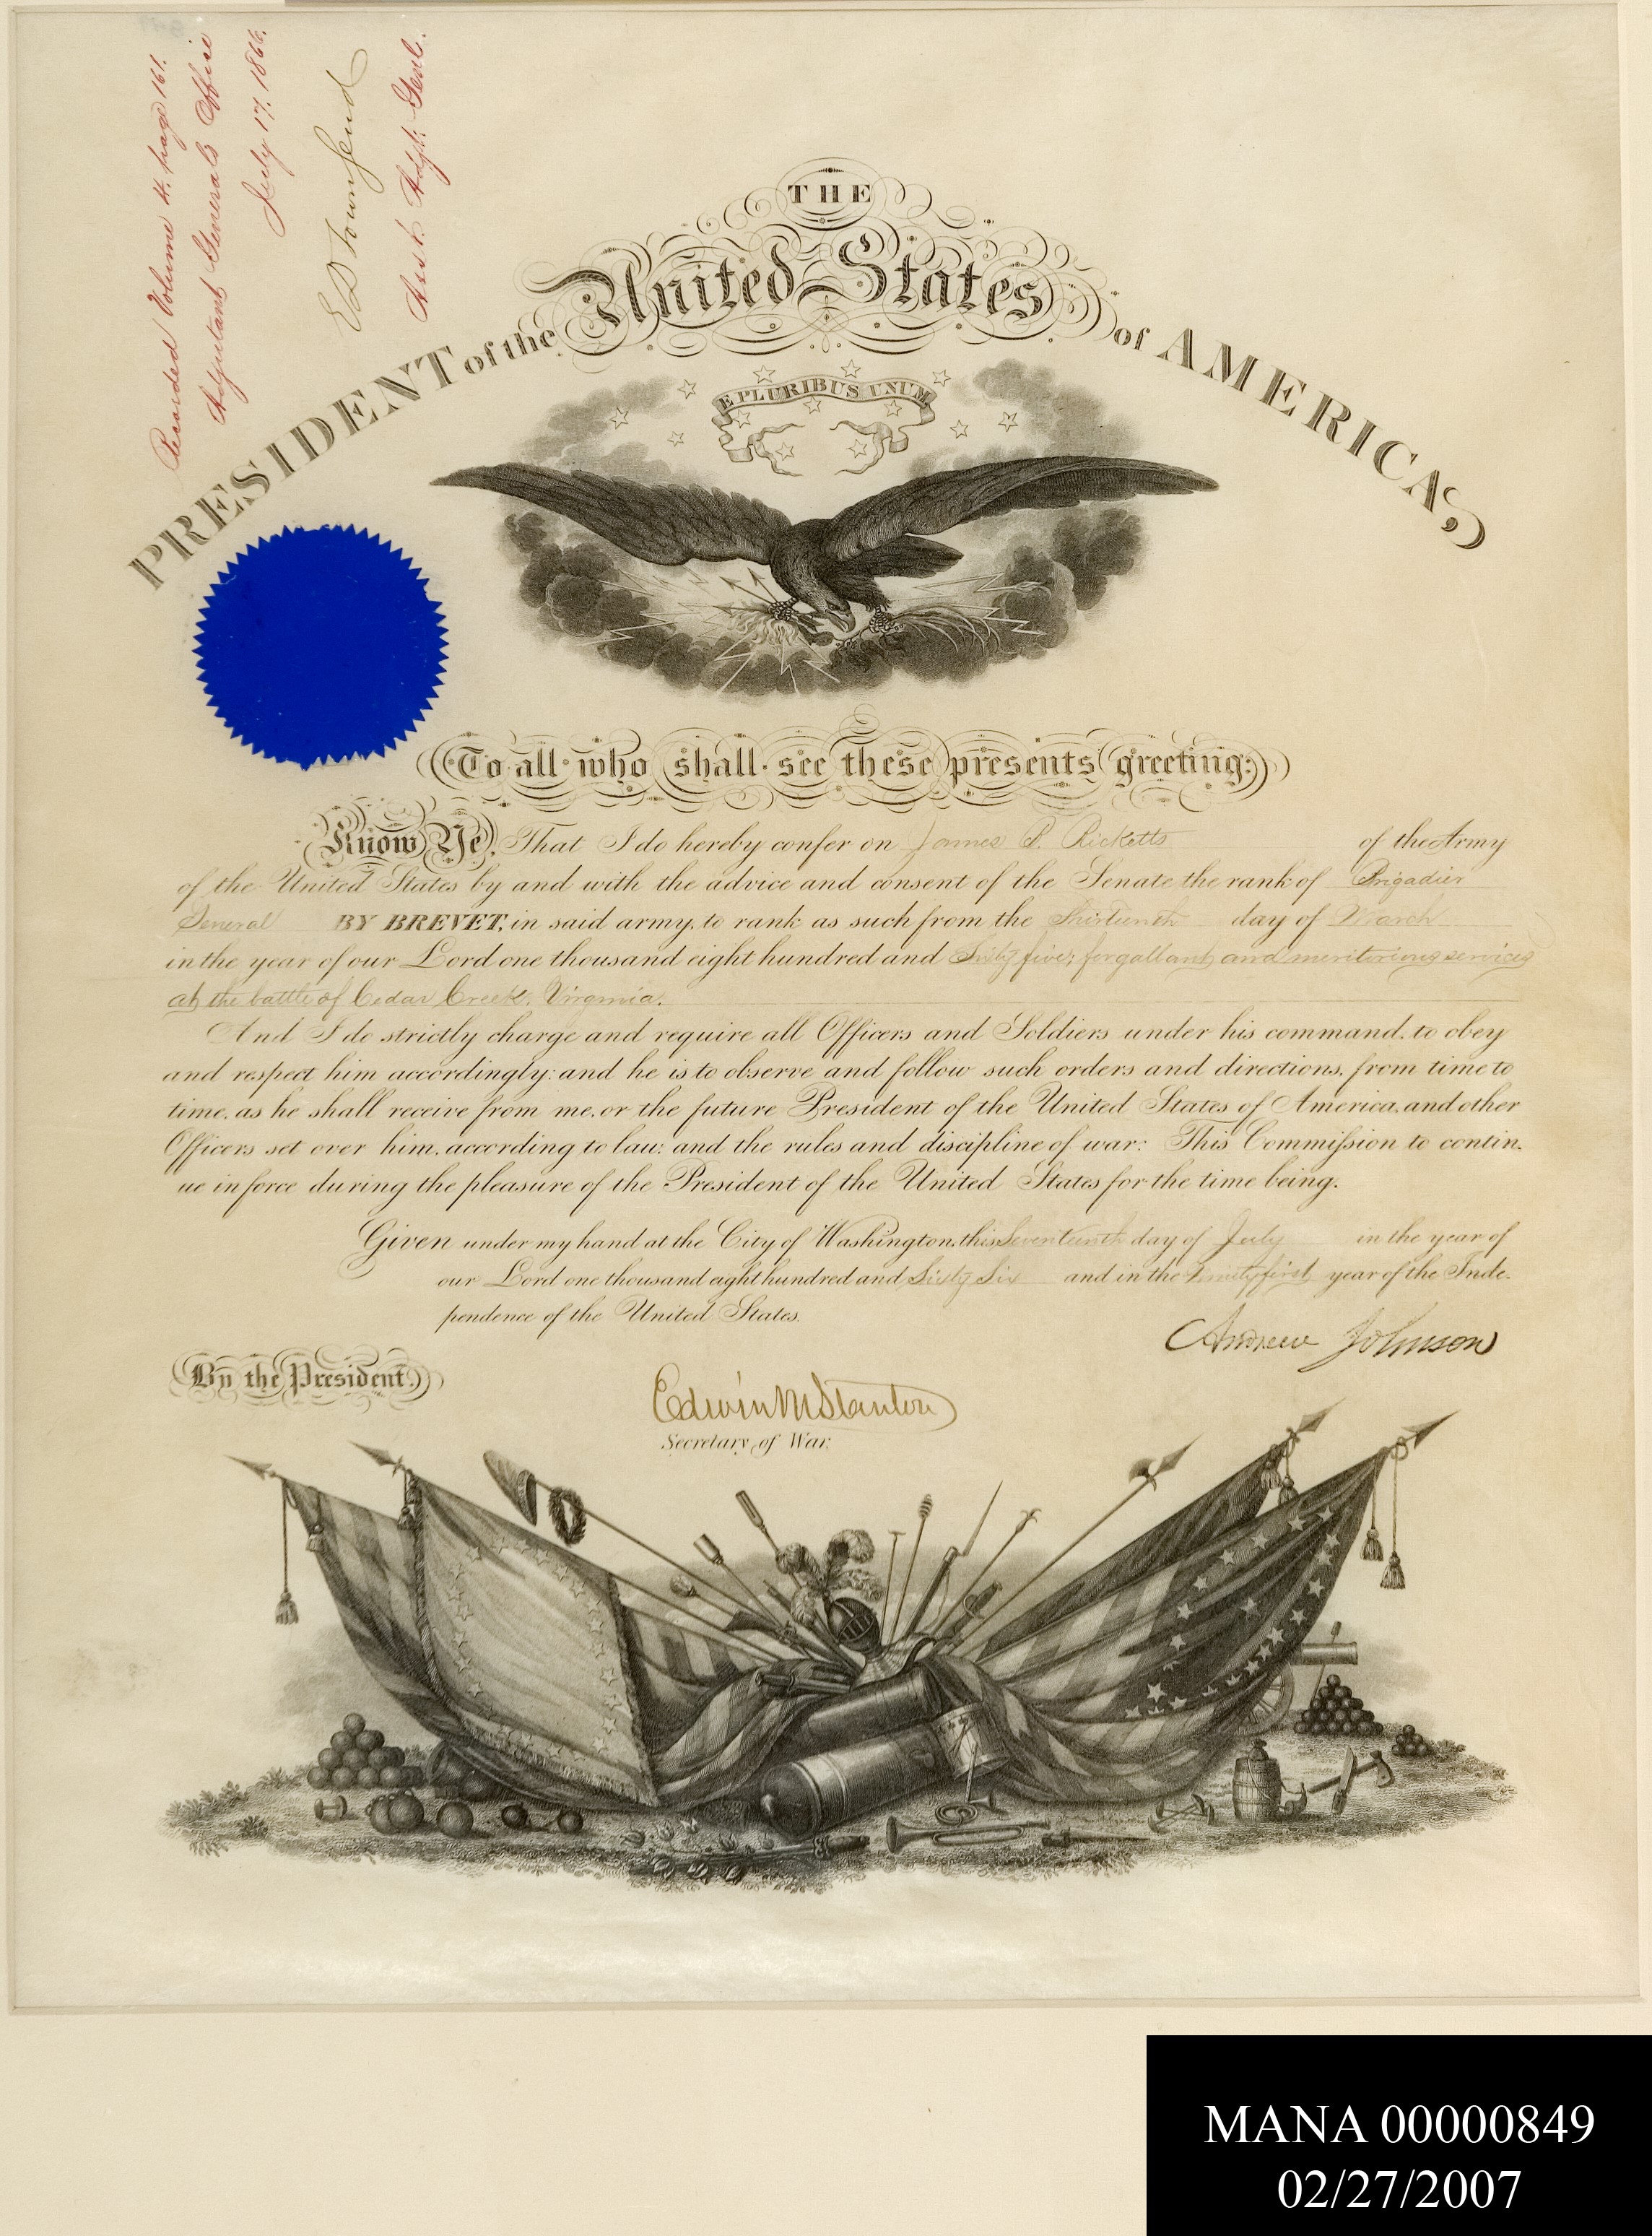 Recorded Volume 4. page 161.
Adjutant Generals Office
July 17. 1866.
ED Townsend
Asst. Adjt. Genl.
THE
PRESIDENT of the United States of AMERICA,
E PLURIBUS UNUM
To all who shall see these presents greeting:
Know Ye, That I do hereby confer on James B. Ricketts of the Army
of the United States by and with the advice and consent of the Senate the rank of Brigadier
General BY BREVET, in said army, to rank as such from the Thirteenth day of March
in the year of our Lord one thousand eight hundred and Sixty five, for gallant and meritorious services
at the battle of Cedar Creek, Virginia.
And I do strictly charge and require all Officers and Soldiers under his command, to obey
and respect him accordingly: and he is to observe and follow such orders and directions, from time to
time, as he shall receive from me, or the future President of the United States of America, and other
Officers set over him, according to law: and the rules and discipline of war: This Commission to contin-
ue in force during the pleasure of the President of the United States for the time being.
Given under my hand at the City of Washington, this Seventeenth day of July in the year of
our Lord one thousand eight hundred and Sixty Six and in the Ninety first year of the Inde-
pendence of the United States.
Andrew Johnson
By the President.
Edwin M Stanton
Secretary of War.
MANA 00000849
02/27/2007